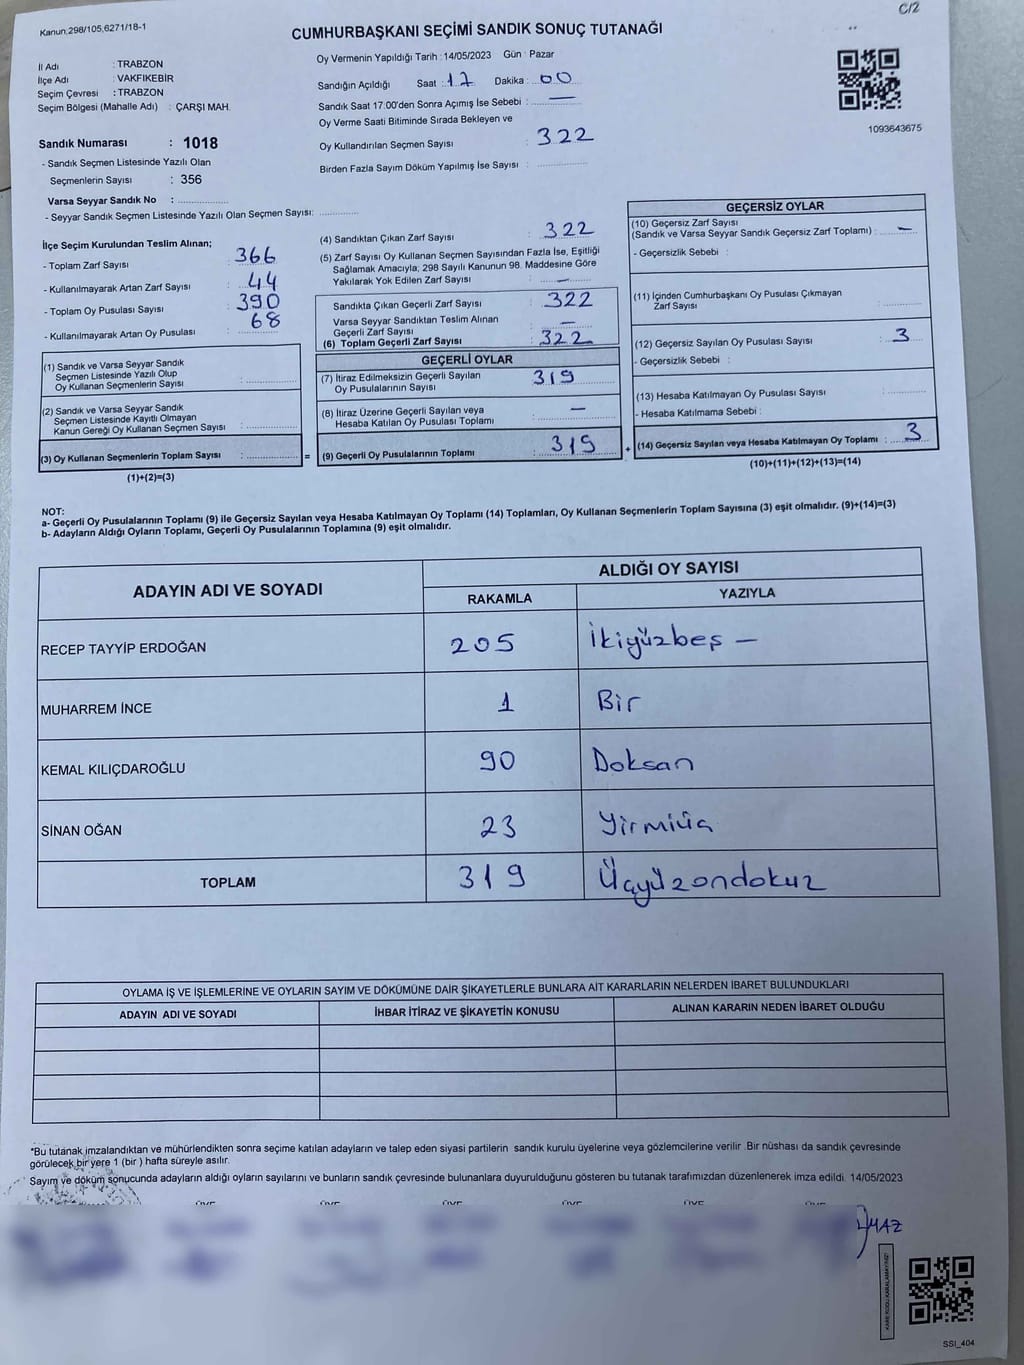 C/2
Kanun;298/105,6271/18-1
CUMHURBAŞKANI SEÇİMİ SANDIK SONUÇ TUTANAĞI
Oy Vermenin Yapıldığı Tarih : 14/05/2023 Gün : Pazar
İl Adı : TRABZON
İlçe Adı : VAKFIKEBİR
Seçim Çevresi : TRABZON
Seçim Bölgesi (Mahalle Adı) : ÇARŞI MAH.
Sandığın Açıldığı Saat : 17 Dakika : 00
Sandık Saat 17:00'den Sonra Açımış İse Sebebi : —
Oy Verme Saati Bitiminde Sırada Bekleyen ve
Oy Kullandırılan Seçmen Sayısı : 322
Birden Fazla Sayım Döküm Yapılmış İse Sayısı :
1093643675
Sandık Numarası : 1018
- Sandık Seçmen Listesinde Yazılı Olan
Seçmenlerin Sayısı : 356
Varsa Seyyar Sandık No :
- Seyyar Sandık Seçmen Listesinde Yazılı Olan Seçmen Sayısı:
İlçe Seçim Kurulundan Teslim Alınan;
- Toplam Zarf Sayısı : 366
- Kullanılmayarak Artan Zarf Sayısı : 44
- Toplam Oy Pusulası Sayısı : 390
- Kullanılmayarak Artan Oy Pusulası : 68
(1) Sandık ve Varsa Seyyar Sandık
Seçmen Listesinde Yazılı Olup
Oy Kullanan Seçmenlerin Sayısı :
(2) Sandık ve Varsa Seyyar Sandık
Seçmen Listesinde Kayıtlı Olmayan
Kanun Gereği Oy Kullanan Seçmen Sayısı :
(3) Oy Kullanan Seçmenlerin Toplam Sayısı : =
(1)+(2)=(3)
(4) Sandıktan Çıkan Zarf Sayısı : 322
(5) Zarf Sayısı Oy Kullanan Seçmen Sayısından Fazla İse, Eşitliği
Sağlamak Amacıyla, 298 Sayılı Kanunun 98. Maddesine Göre
Yakılarak Yok Edilen Zarf Sayısı : —
Sandıkta Çıkan Geçerli Zarf Sayısı : 322
Varsa Seyyar Sandıktan Teslim Alınan
Geçerli Zarf Sayısı : —
(6) Toplam Geçerli Zarf Sayısı : 322
GEÇERLİ OYLAR
(7) İtiraz Edilmeksizin Geçerli Sayılan
Oy Pusulalarının Sayısı : 319
(8) İtiraz Üzerine Geçerli Sayılan veya
Hesaba Katılan Oy Pusulası Toplamı : —
(9) Geçerli Oy Pusulalarının Toplamı : 319 +
GEÇERSİZ OYLAR
(10) Geçersiz Zarf Sayısı
(Sandık ve Varsa Seyyar Sandık Geçersiz Zarf Toplamı) : —
- Geçersizlik Sebebi :
(11) İçinden Cumhurbaşkanı Oy Pusulası Çıkmayan
Zarf Sayısı :
(12) Geçersiz Sayılan Oy Pusulası Sayısı : 3
- Geçersizlik Sebebi :
(13) Hesaba Katılmayan Oy Pusulası Sayısı :
- Hesaba Katılmama Sebebi :
(14) Geçersiz Sayılan veya Hesaba Katılmayan Oy Toplamı : 3
(10)+(11)+(12)+(13)=(14)
NOT:
a- Geçerli Oy Pusulalarının Toplamı (9) ile Geçersiz Sayılan veya Hesaba Katılmayan Oy Toplamı (14) Toplamları, Oy Kullanan Seçmenlerin Toplam Sayısına (3) eşit olmalıdır. (9)+(14)=(3)
b- Adayların Aldığı Oyların Toplamı, Geçerli Oy Pusulalarının Toplamına (9) eşit olmalıdır.
ADAYIN ADI VE SOYADI ALDIĞI OY SAYISI
RAKAMLA YAZIYLA
RECEP TAYYİP ERDOĞAN 205 İkiyüzbeş —
MUHARREM İNCE 1 Bir
KEMAL KILIÇDAROĞLU 90 Doksan
SİNAN OĞAN 23 Yirmiüç
TOPLAM 319 Üçyüzondokuz
OYLAMA İŞ VE İŞLEMLERİNE VE OYLARIN SAYIM VE DÖKÜMÜNE DAİR ŞİKAYETLERLE BUNLARA AİT KARARLARIN NELERDEN İBARET BULUNDUKLARI
ADAYIN ADI VE SOYADI İHBAR İTİRAZ VE ŞİKAYETİN KONUSU ALINAN KARARIN NEDEN İBARET OLDUĞU
*Bu tutanak imzalandıktan ve mühürlendikten sonra seçime katılan adayların ve talep eden siyasi partilerin sandık kurulu üyelerine veya gözlemcilerine verilir. Bir nüshası da sandık çevresinde
görülecek bir yere 1 (bir ) hafta süreyle asılır.
Sayım ve döküm sonucunda adayların aldığı oyların sayılarını ve bunların sandık çevresinde bulunanlara duyurulduğunu gösteren bu tutanak tarafımızdan düzenlenerek imza edildi. 14/05/2023
ÜYE ÜYE ÜYE ÜYE ÜYE ÜYE
SSI_404